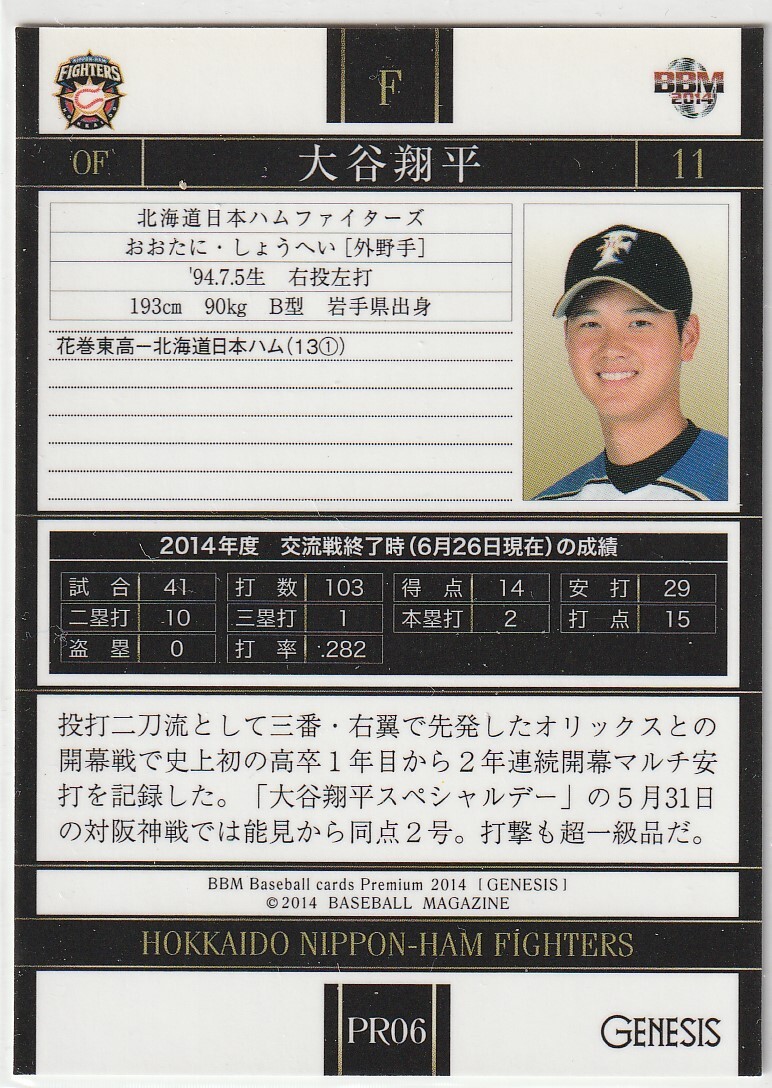 NIPPON-HAM
FIGHTERS
HOKKAIDO
F
BBM
2014
OF
大谷翔平
11
北海道日本ハムファイターズ
おおたに・しょうへい［外野手］
'94.7.5生　右投左打
193cm　90kg　B型　岩手県出身
花巻東高ー北海道日本ハム(13①)
F
2014年度　交流戦終了時(6月26日現在)の成績
試合 41 打数 103 得点 14 安打 29
二塁打 10 三塁打 1 本塁打 2 打点 15
盗塁 0 打率 .282
投打二刀流として三番・右翼で先発したオリックスとの
開幕戦で史上初の高卒１年目から２年連続開幕マルチ安
打を記録した。「大谷翔平スペシャルデー」の５月31日
の対阪神戦では能見から同点２号。打撃も超一級品だ。
BBM Baseball cards Premium 2014 [GENESIS]
©2014 BASEBALL MAGAZINE
HOKKAIDO NIPPON-HAM FIGHTERS
PR06
GENESIS